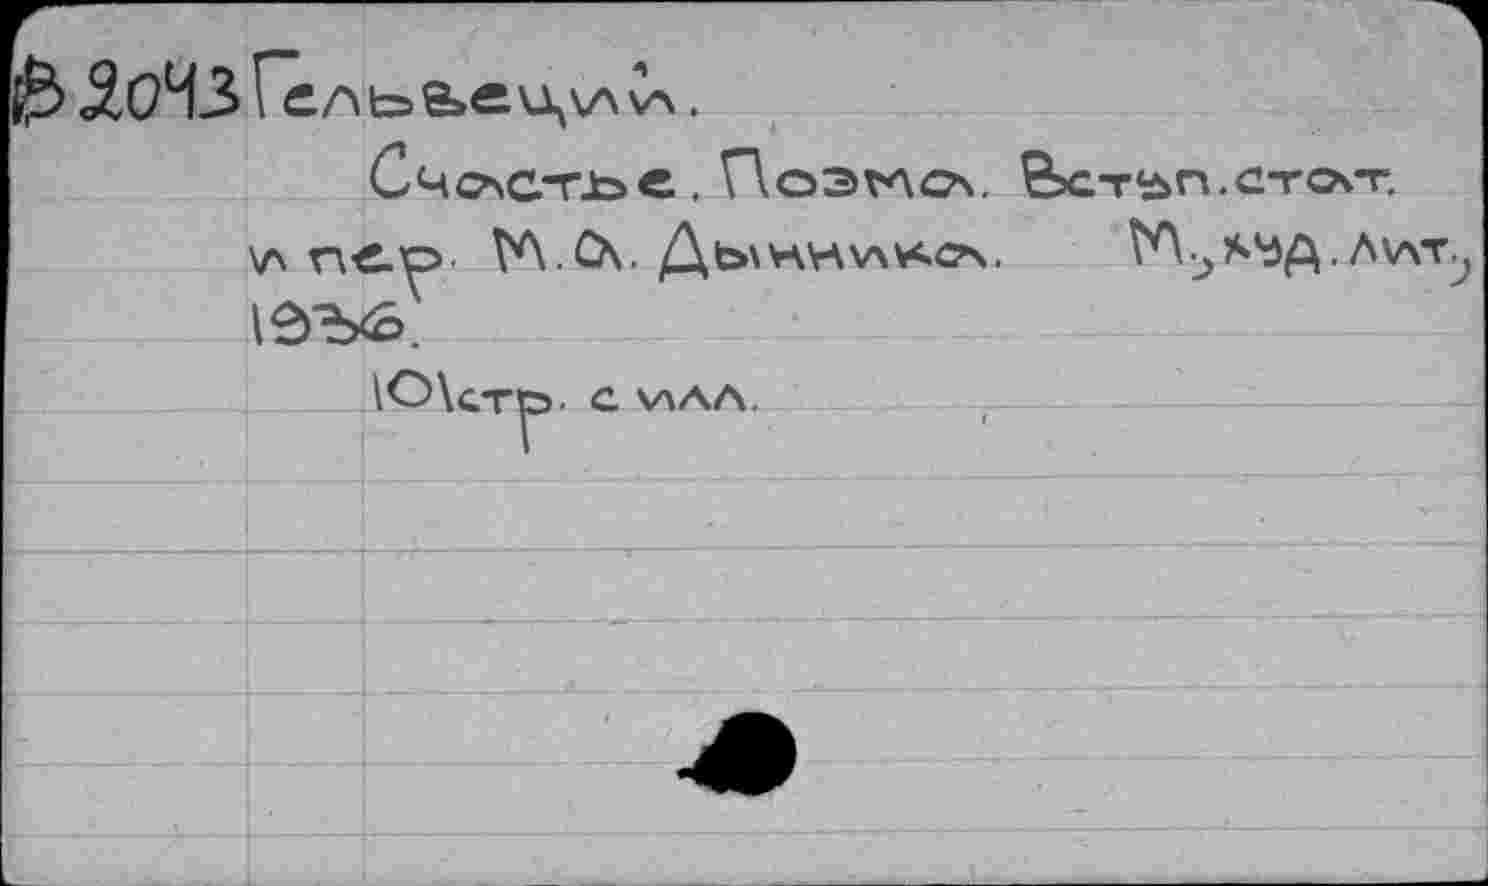 В 2043 Гельвеций.
Счастье. Поэма. Вступ.стат.
и пер. М.А. Дынника. М., худ. лит.,
1936.
101стр. с илл.